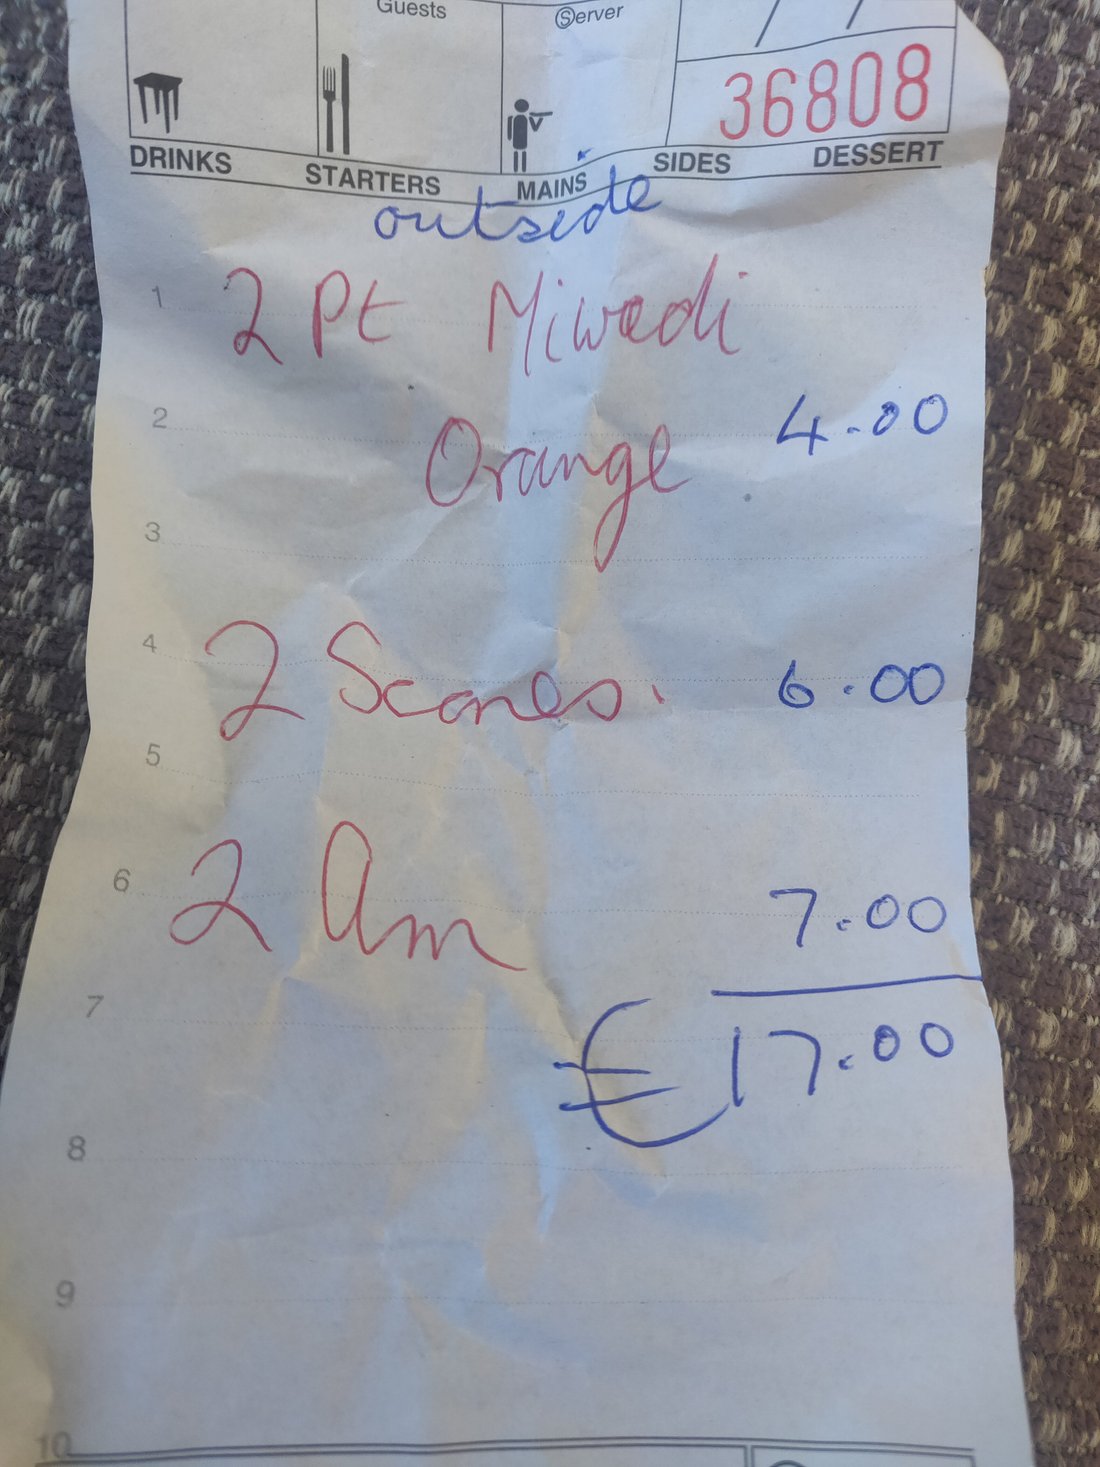 Guests
Server
36808
DRINKS STARTERS MAINS SIDES DESSERT
outside
1 2 Pt Miwadi
2 Orange 4.00
3
4 2 Scones. 6.00
5
6 2 Am 7.00
7 €17.00
8
9
10